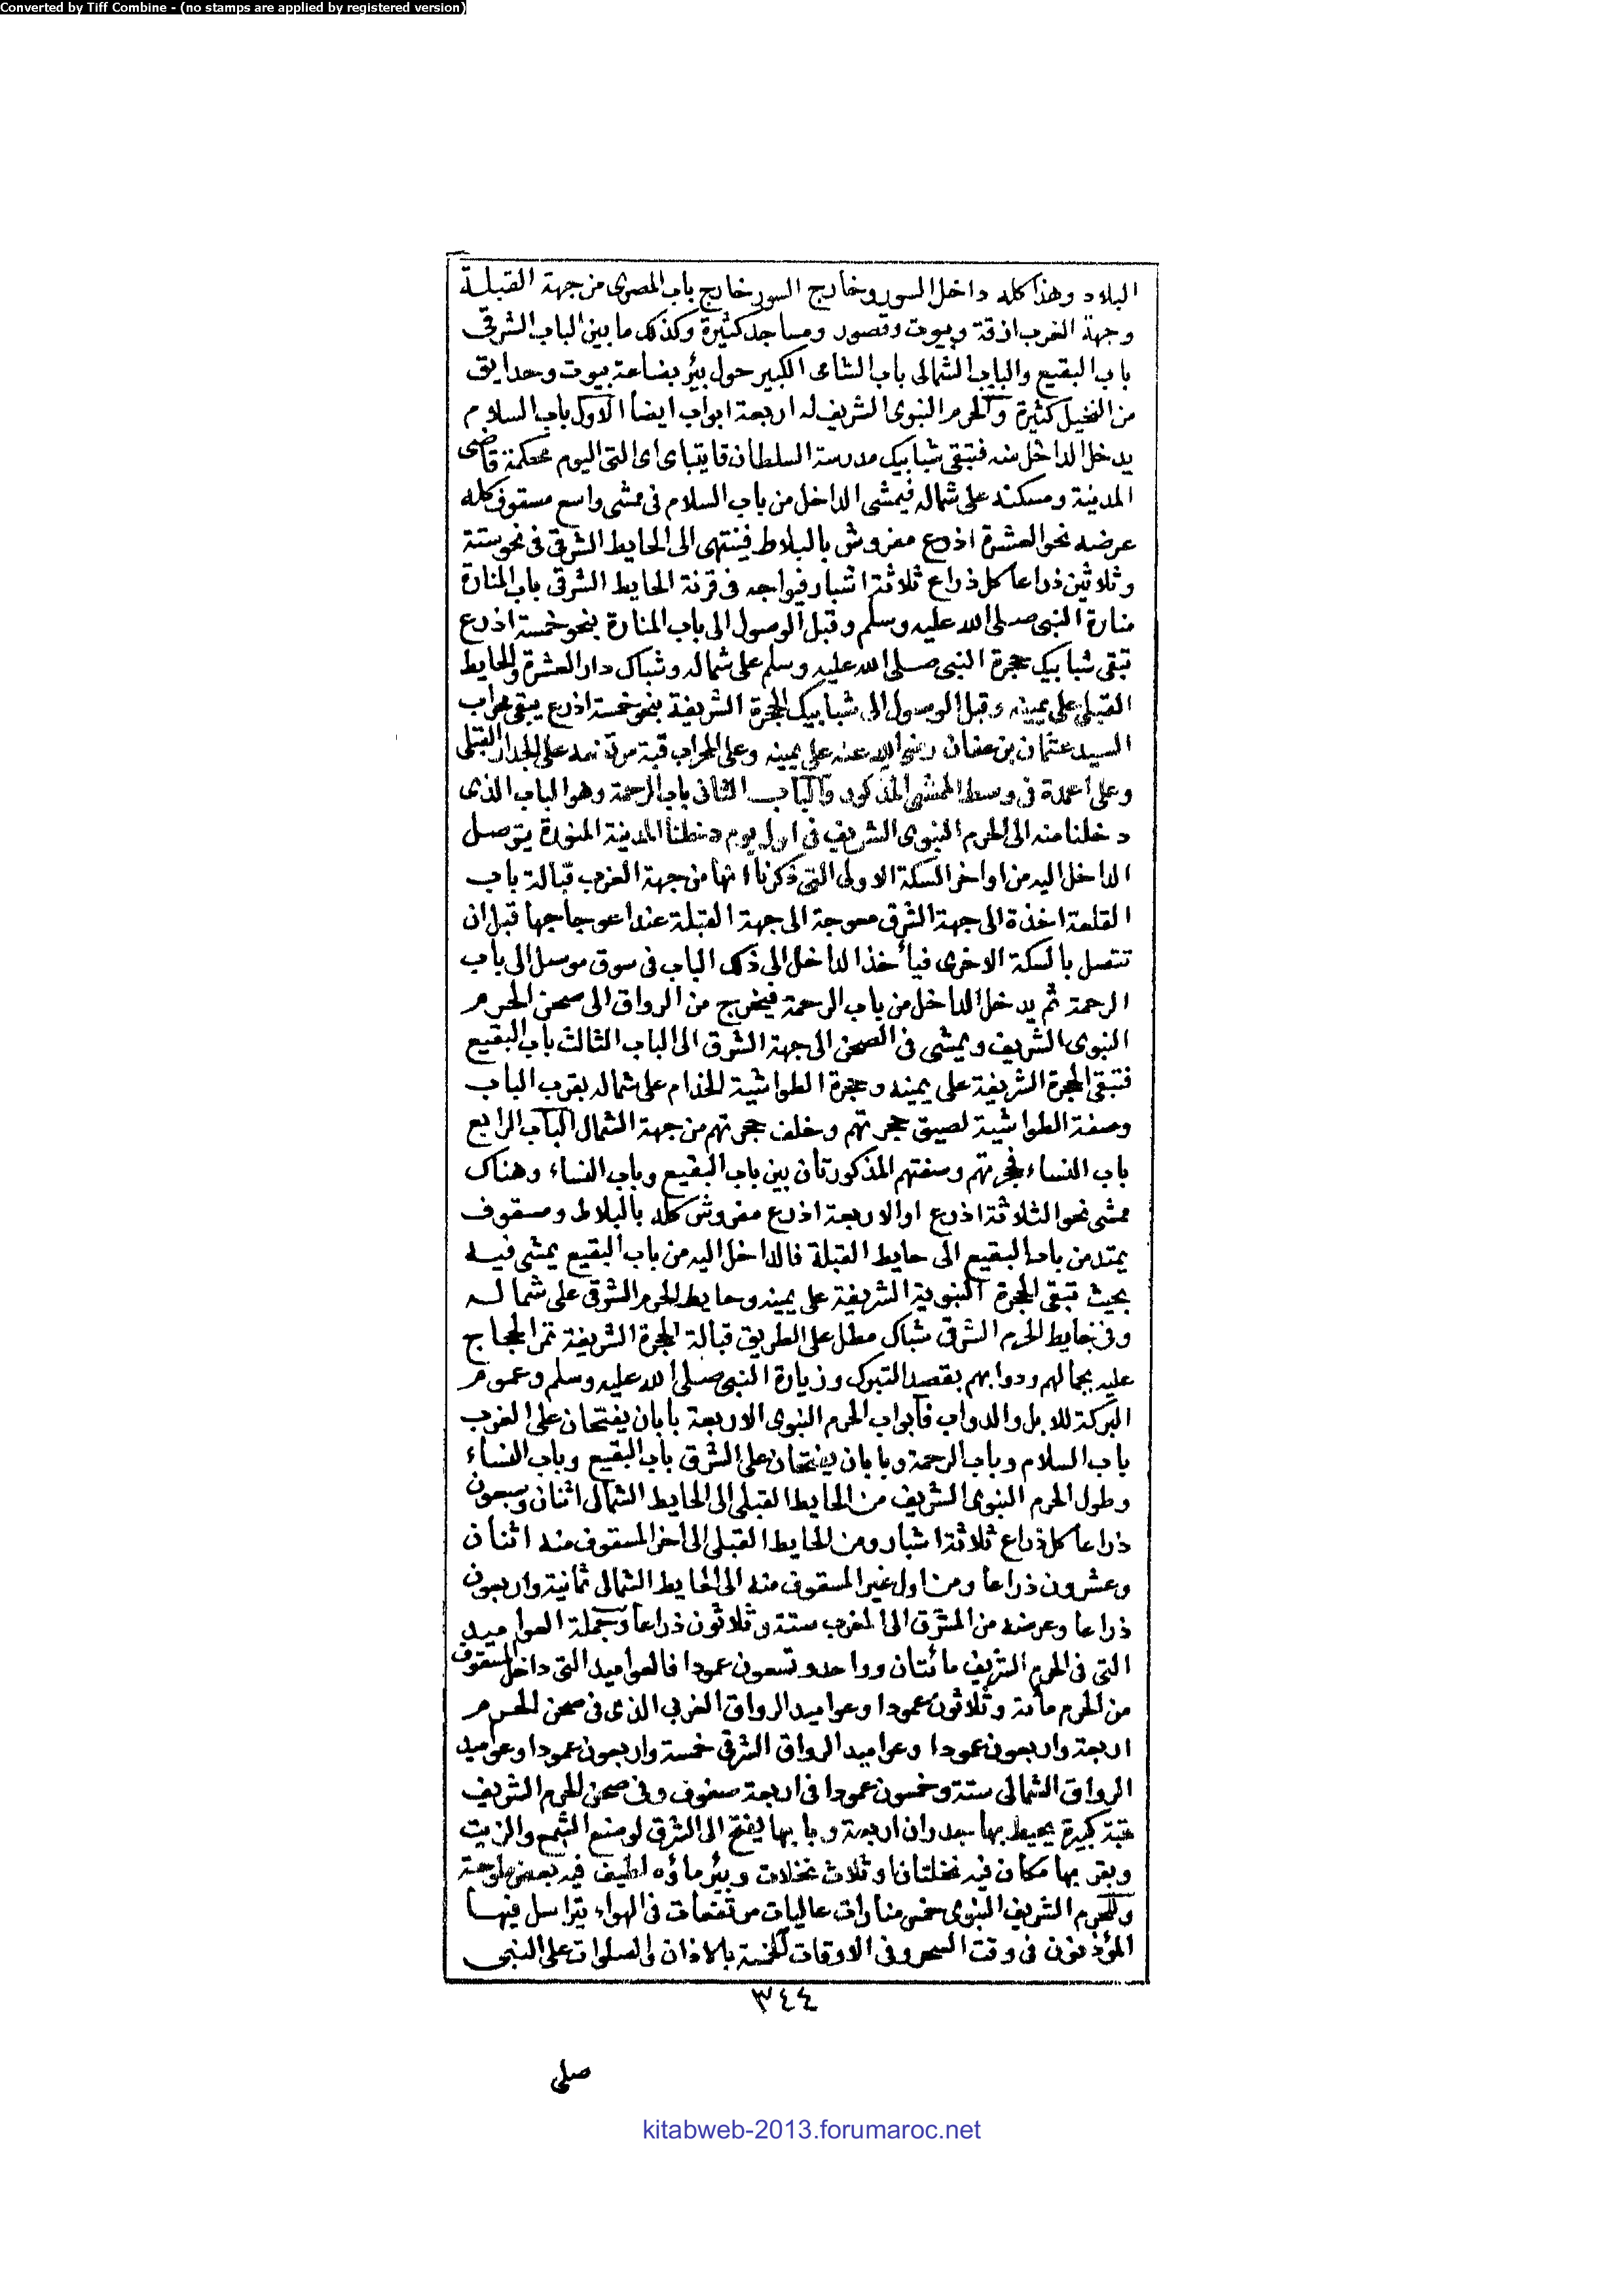 Converted by Tiff Combine - (no stamps are applied by registered version)
البلاد وهذا كله داخل السور وخارج السور خارج باب المصرى من جهة القبلة
وجهة الغرب ازقة وبيوت وقصور ومساجد كثيرة وكذلك ما بين الباب الشرقى
باب البقيع والباب الشمالى باب الشامى الكبير حول بئر بضاعة بيوت وحدايق
من النخيل كثيرة والحرم النبوى الشريف له اربعة ابواب ايضا الاول باب السلام
يدخل الداخل منه فتبقى شبابيك مدرسة السلطان قايتباى اى التى اليوم محكمة قاضى
المدينة ومسكنه على شماله فيمشى الداخل من باب السلام فى ممشى واسع مسقوف كله
عرضه نحو العشرة اذرع مفروش بالبلاط فينتهى الى الحايط الشرقى فى نحو ستة
وثلاثين ذراعا كل ذراع ثلاثة اشبار فيواجه فى قرنة الحايط الشرقى باب المنارة
منارة النبى صلى الله عليه وسلم وقبل الوصول الى باب المنارة بنحو خمسة اذرع
تبقى شبابيك حجرة النبى صلى الله عليه وسلم على شماله وشباك دار العشرة والحايط
القبلى على يمينه وقبل الوصول الى شبابيك الحجرة الشريفة بنحو خمسة اذرع يبقى محراب
السيد عثمان بن عفان رضى الله عنه على يمينه وعلى المحراب قبة على الجدار القبلى
وعلى اعمدة فى وسط الممشى المذكور والباب الثانى باب الرحمة وهو الباب الذى
دخلنا منه الى الحرم النبوى الشريف فى اول يوم دخلنا المدينة المنورة يتوصل
الداخل اليه من اواخر السكة الاولى التى ذكرنا انها من جهة الغرب قبالة باب
القلعة اخذة الى جهة الشرق معوجة الى جهة القبلة عند اعوجاجها قبل ان
تتصل بالسكة الاخرى فيأخذ الداخل الى ذلك الباب فى سوق موصل الى باب
الرحمة ثم يدخل الداخل من باب الرحمة فيخرج من الرواق الى صحن الحرم
النبوى الشريف ويمشى فى الصحن الى جهة الشرق الى الباب الثالث باب البقيع
فتبقى الحجرة الشريفة على يمينه وحجرة الطواشية الخدام على شماله بقرب الباب
وصفة الطواشية لصيق حجرتهم وخلف حجرتهم من جهة الشمال الباب الرابع
باب النساء فحجرتهم وصفتهم المذكورتان بين باب البقيع وباب النساء وهناك
ممشى نحو الثلاثة اذرع او الاربعة اذرع مفروش كله بالبلاط ومسقوف
يمتد من باب البقيع الى حايط القبلة فالداخل اليه من باب البقيع يمشى فيه
بحيث تبقى الحجرة النبوية الشريفة على يمينه وحايط الحرم الشرقى على شماله
وفى حايط الحرم الشرقى شباك مطل على الطريق قبالة الحجرة الشريفة تمر الحجاج
عليه بجمالهم ودوابهم بقصد التبرك وزيارة النبى صلى الله عليه وسلم وعموم
البركة للابل والدواب فابواب الحرم النبوى الاربعة بابان يفتحان على الغرب
باب السلام وباب الرحمة وبابان يفتحان على الشرق باب البقيع وباب النساء
وطول الحرم النبوى الشريف من الحايط القبلى الى الحايط الشمالى اثنان وسبعون
ذراعا كل ذراع ثلاثة اشبار ومن الحايط القبلى الى اخر المسقوف منه اثنان
وعشرون ذراعا ومن اول غير المسقوف منه الى الحايط الشمالى ثمانية واربعون
ذراعا وعرضه من المشرق الى المغرب ستة وثلاثون ذراعا وجملة العواميد
التى فى الحرم الشريف مائتان وواحد وتسعون عمودا فالعواميد التى داخل المسقوف
من الحرم مائة وثلاثون عمودا وعواميد الرواق الغربى الذى فى صحن الحرم
اربعة واربعون عمودا وعواميد الرواق الشرقى خمسة واربعون عمودا وعواميد
الرواق الشمالى ستة وخمسون عمودا فى اربعة صفوف وفى صحن الحرم الشريف
قبة كبيرة يحيط بها جدران اربعة وبابها يفتح الى الشرق لوضع الشمع والزيت
وبقربها مكان فيه نخلتان او ثلاث نخلات وبئر ماؤه لطيف فيه بعض ملوحة
وللحرم الشريف النبوى خمس منارات عاليات مرتفعات فى الهواء يتراسل فيها
المؤذنون فى وقت السحر وفى الاوقات الخمسة بالاذان والصلوات على النبى
٣٤٤
صلى
kitabweb-2013.forumaroc.net